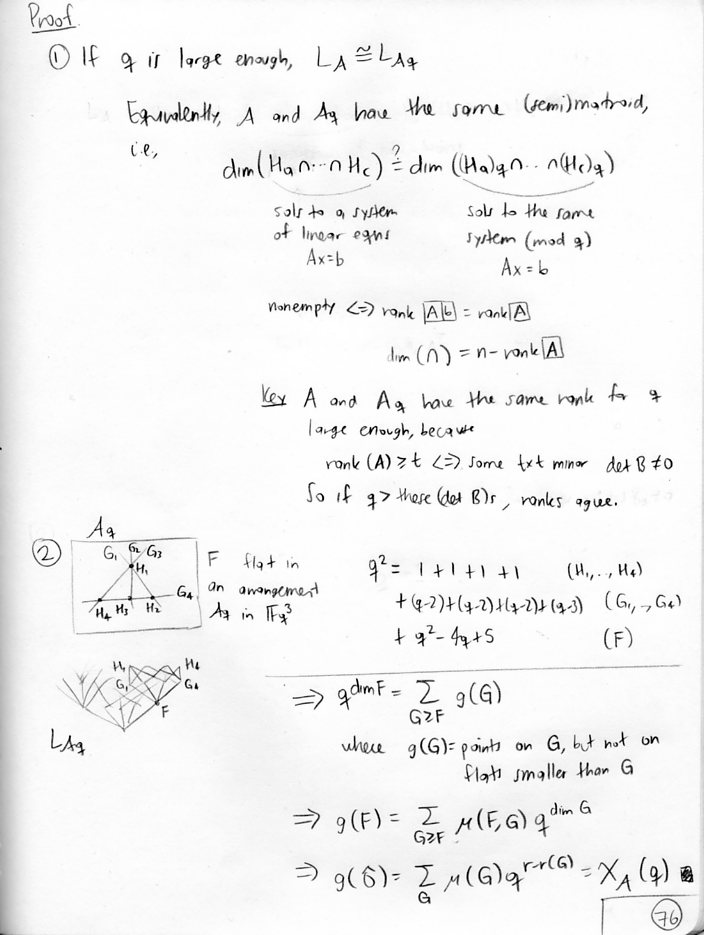 Proof.
① If q is large enough, L_A ≅ L_Aq
Equivalently, A and Aq have the same (semi)matroid,
i.e,
dim(Ha∩···∩Hc) ?= dim((Ha)q∩...∩(Hc)q)
sols to a system sols to the same
of linear eqns system (mod q)
Ax=b Ax=b
nonempty <=> rank [A|b] = rank [A]
dim(∩) = n-rank [A]
Key A and Aq have the same rank for q
large enough, because
rank (A) ≥ t <=> some txt minor det B ≠ 0
So if q > these (det B)s, ranks agree.
② Aq
G1 G2 G3
H1
G4
H4 H3 H2
F flat in
an arrangement
Aq in 𝔽q^3
q^2 = 1+1+1+1 (H1,..,H4)
+(q-2)+(q-2)+(q-2)+(q-3) (G1,..,G4)
+ q^2-4q+5 (F)
H1 H4
G1 G4
F
L_Aq
=> q^dim F = Σ_{G≥F} g(G)
where g(G)= points on G, but not on
flats smaller than G
=> g(F) = Σ_{G≥F} μ(F,G) q^dim G
=> g(0̂) = Σ_G μ(G) q^{r-r(G)} = χ_A(q) ■
76